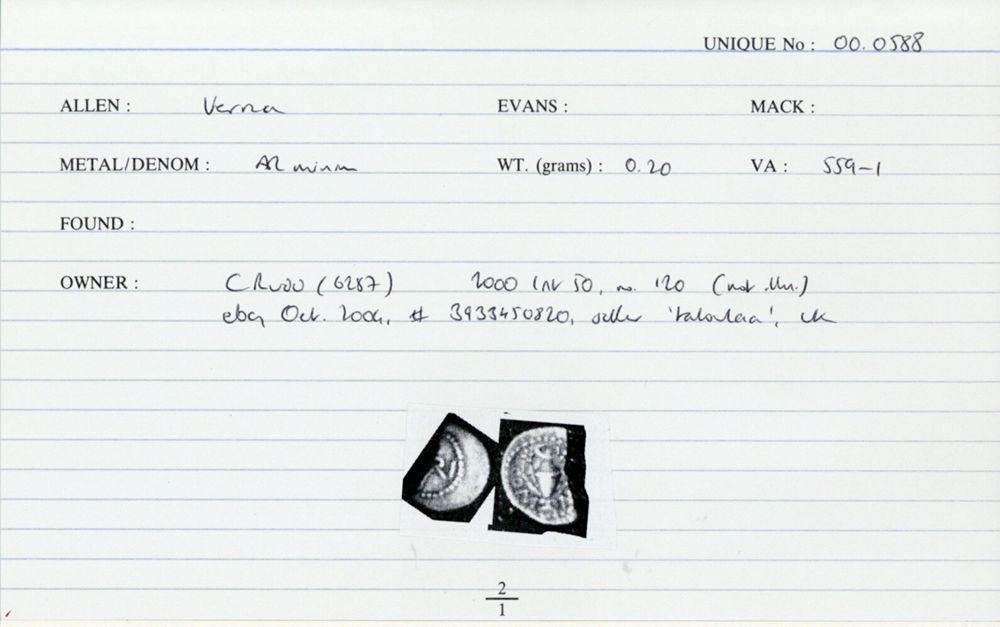 UNIQUE No : 00.0588
ALLEN : Verica EVANS : MACK :
METAL/DENOM : AR minim WT. (grams) : 0.20 VA : 559-1
FOUND :
OWNER : CR (6287) 2000 50, no. 120 (not illn.)
ebay Oct. 2004, # 3933450820, seller uk
2
1